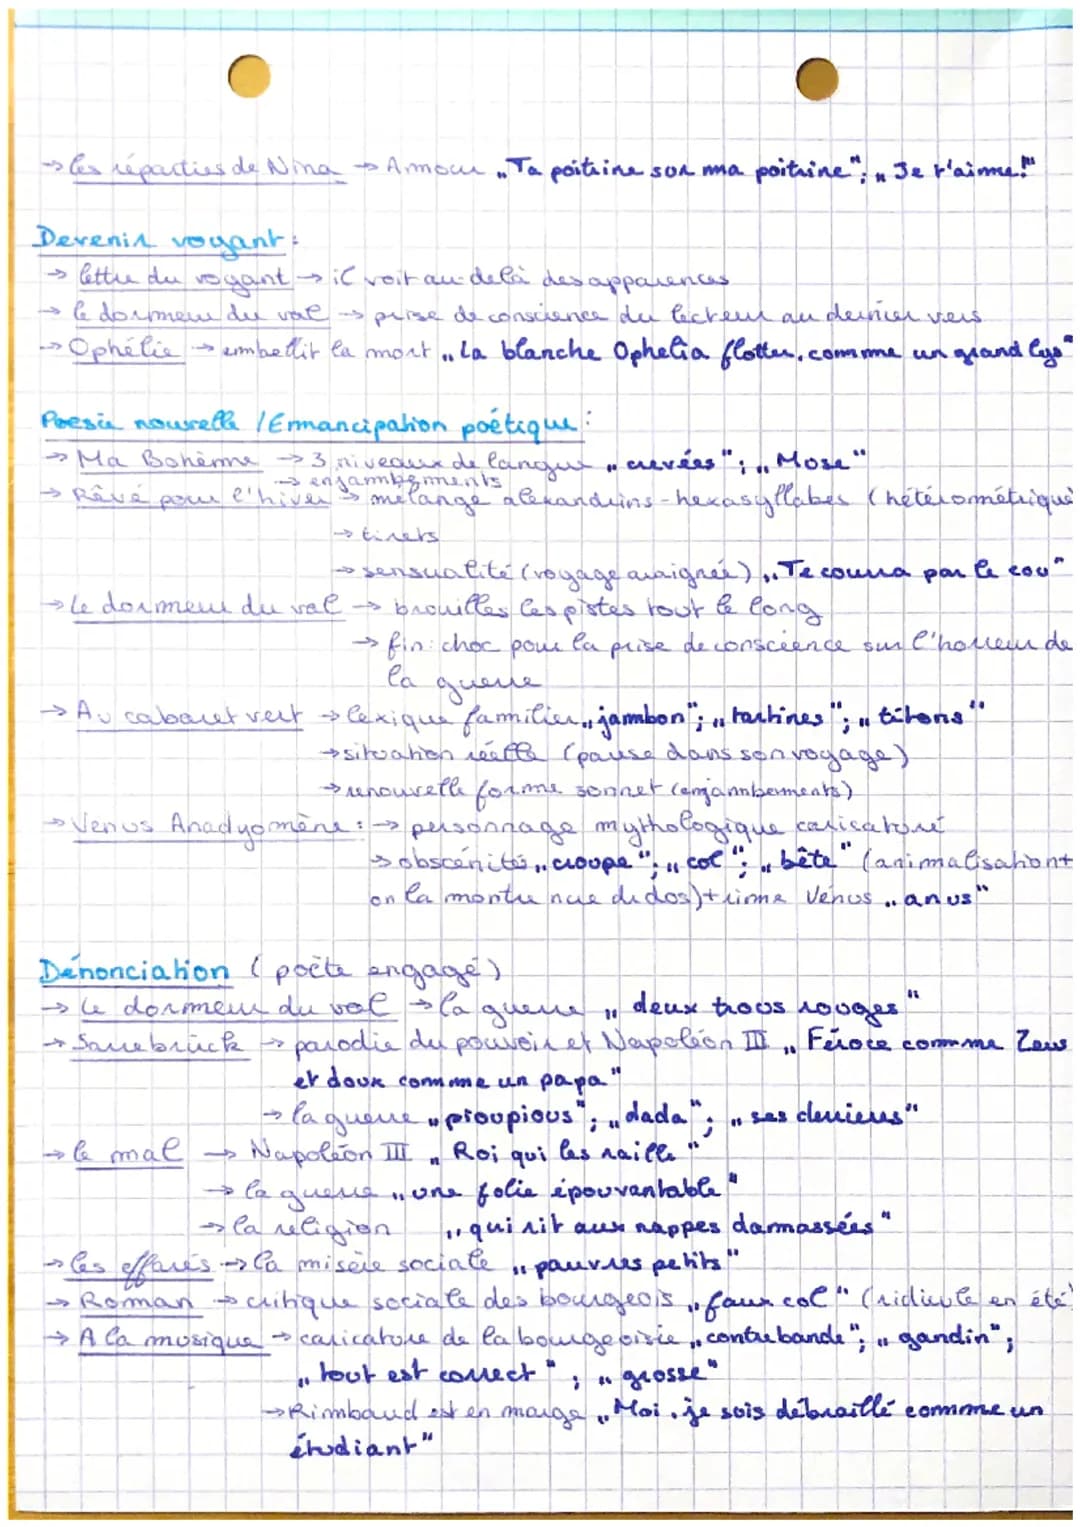 → les réparties de Nina → Amour „Ta poitrine sur ma poitrine"; „Je t'aime!"
Devenir voyant:
→ lettre du voyant → il voit au-delà des apparences
→ le dormeur du val → prise de conscience du lecteur au dernier vers
→ Ophélie → embellit la mort „La blanche Ophelia flotter, comme un grand lys"
Poesie nouvelle / Emancipation poétique:
→ Ma Bohème → 3 niveaux de langue „crevées"; „Mose"
→ enjambements
→ Rêvé pour l'hiver → mélange alexandrins - hexasyllabes (hétérométrique)
→ tirets
→ sensualité (voyage araignée) „Te courra par le cou"
→ Le dormeur du val → brouilles les pistes tout le long
→ fin: choc pour la prise de conscience sur l'horreur de
la guerre
→ Au cabaret vert → lexique familier „jambon"; „tartines"; „tétons"
→ situation réelle (pause dans son voyage)
→ renouvelle forme sonnet (enjambements)
→ Venus Anadyomène: → personnage mythologique caricaturé
→ obscénité „croupe"; „col"; „bête" (animalisation +
on la montre nue de dos) + rime Vénus „anus"
Dénonciation (poète engagé)
→ Le dormeur du val → la guerre „deux trous rouges"
→ Sarrebrück → parodie du pouvoir et Napoléon III „Féroce comme Zeus
et doux comme un papa"
→ la guerre „pioupious"; „dada"; „ses derniers"
→ le mal → Napoléon III „Roi qui les raille"
→ la guerre „une folie épouvantable"
→ la religion „qui rit aux nappes damassées"
→ les effarés → la misère sociale „pauvres petits"
→ Roman → critique sociale des bourgeois „faux col" (ridicule en été)
→ A la musique → caricature de la bourgeoisie „contrebande"; „gandin";
„tout est correct"; „grosse"
→ Rimbaud est en marge „Moi, je suis débraillé comme un
étudiant"